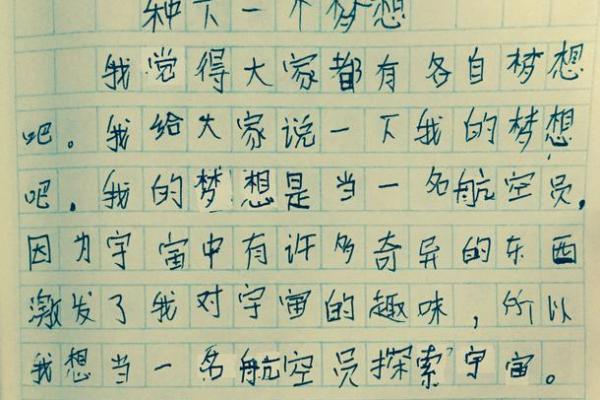 种下一个梦想
我觉得大家都有各自梦想
吧。我给大家说一下我的梦想
吧，我的梦想是当一名航空员，
因为宇宙中有许多奇异的东西
激发了我对宇宙的趣味，所以
我想当一名航空员探索宇宙。